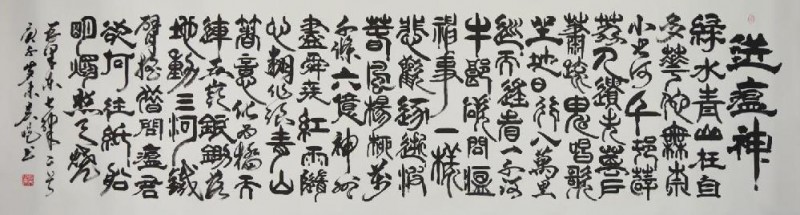 送瘟神
緑水青山枉自
多華佗無奈
小虫何千邨薜
荔人遺矢萬戶
蕭疏鬼唱歌
坐地日行八萬里
巡天遥看一千河
牛郎欲問瘟
神事一樣
悲歡逐逝波
春風楊柳萬
千條六億神州
盡舜堯紅雨隨
心翻作浪青山
着意化為橋天
連五嶺銀鋤落
地動三河鐵
臂搖借問瘟君
欲何往紙船
明燭照天燒
毛澤東七律二首
書